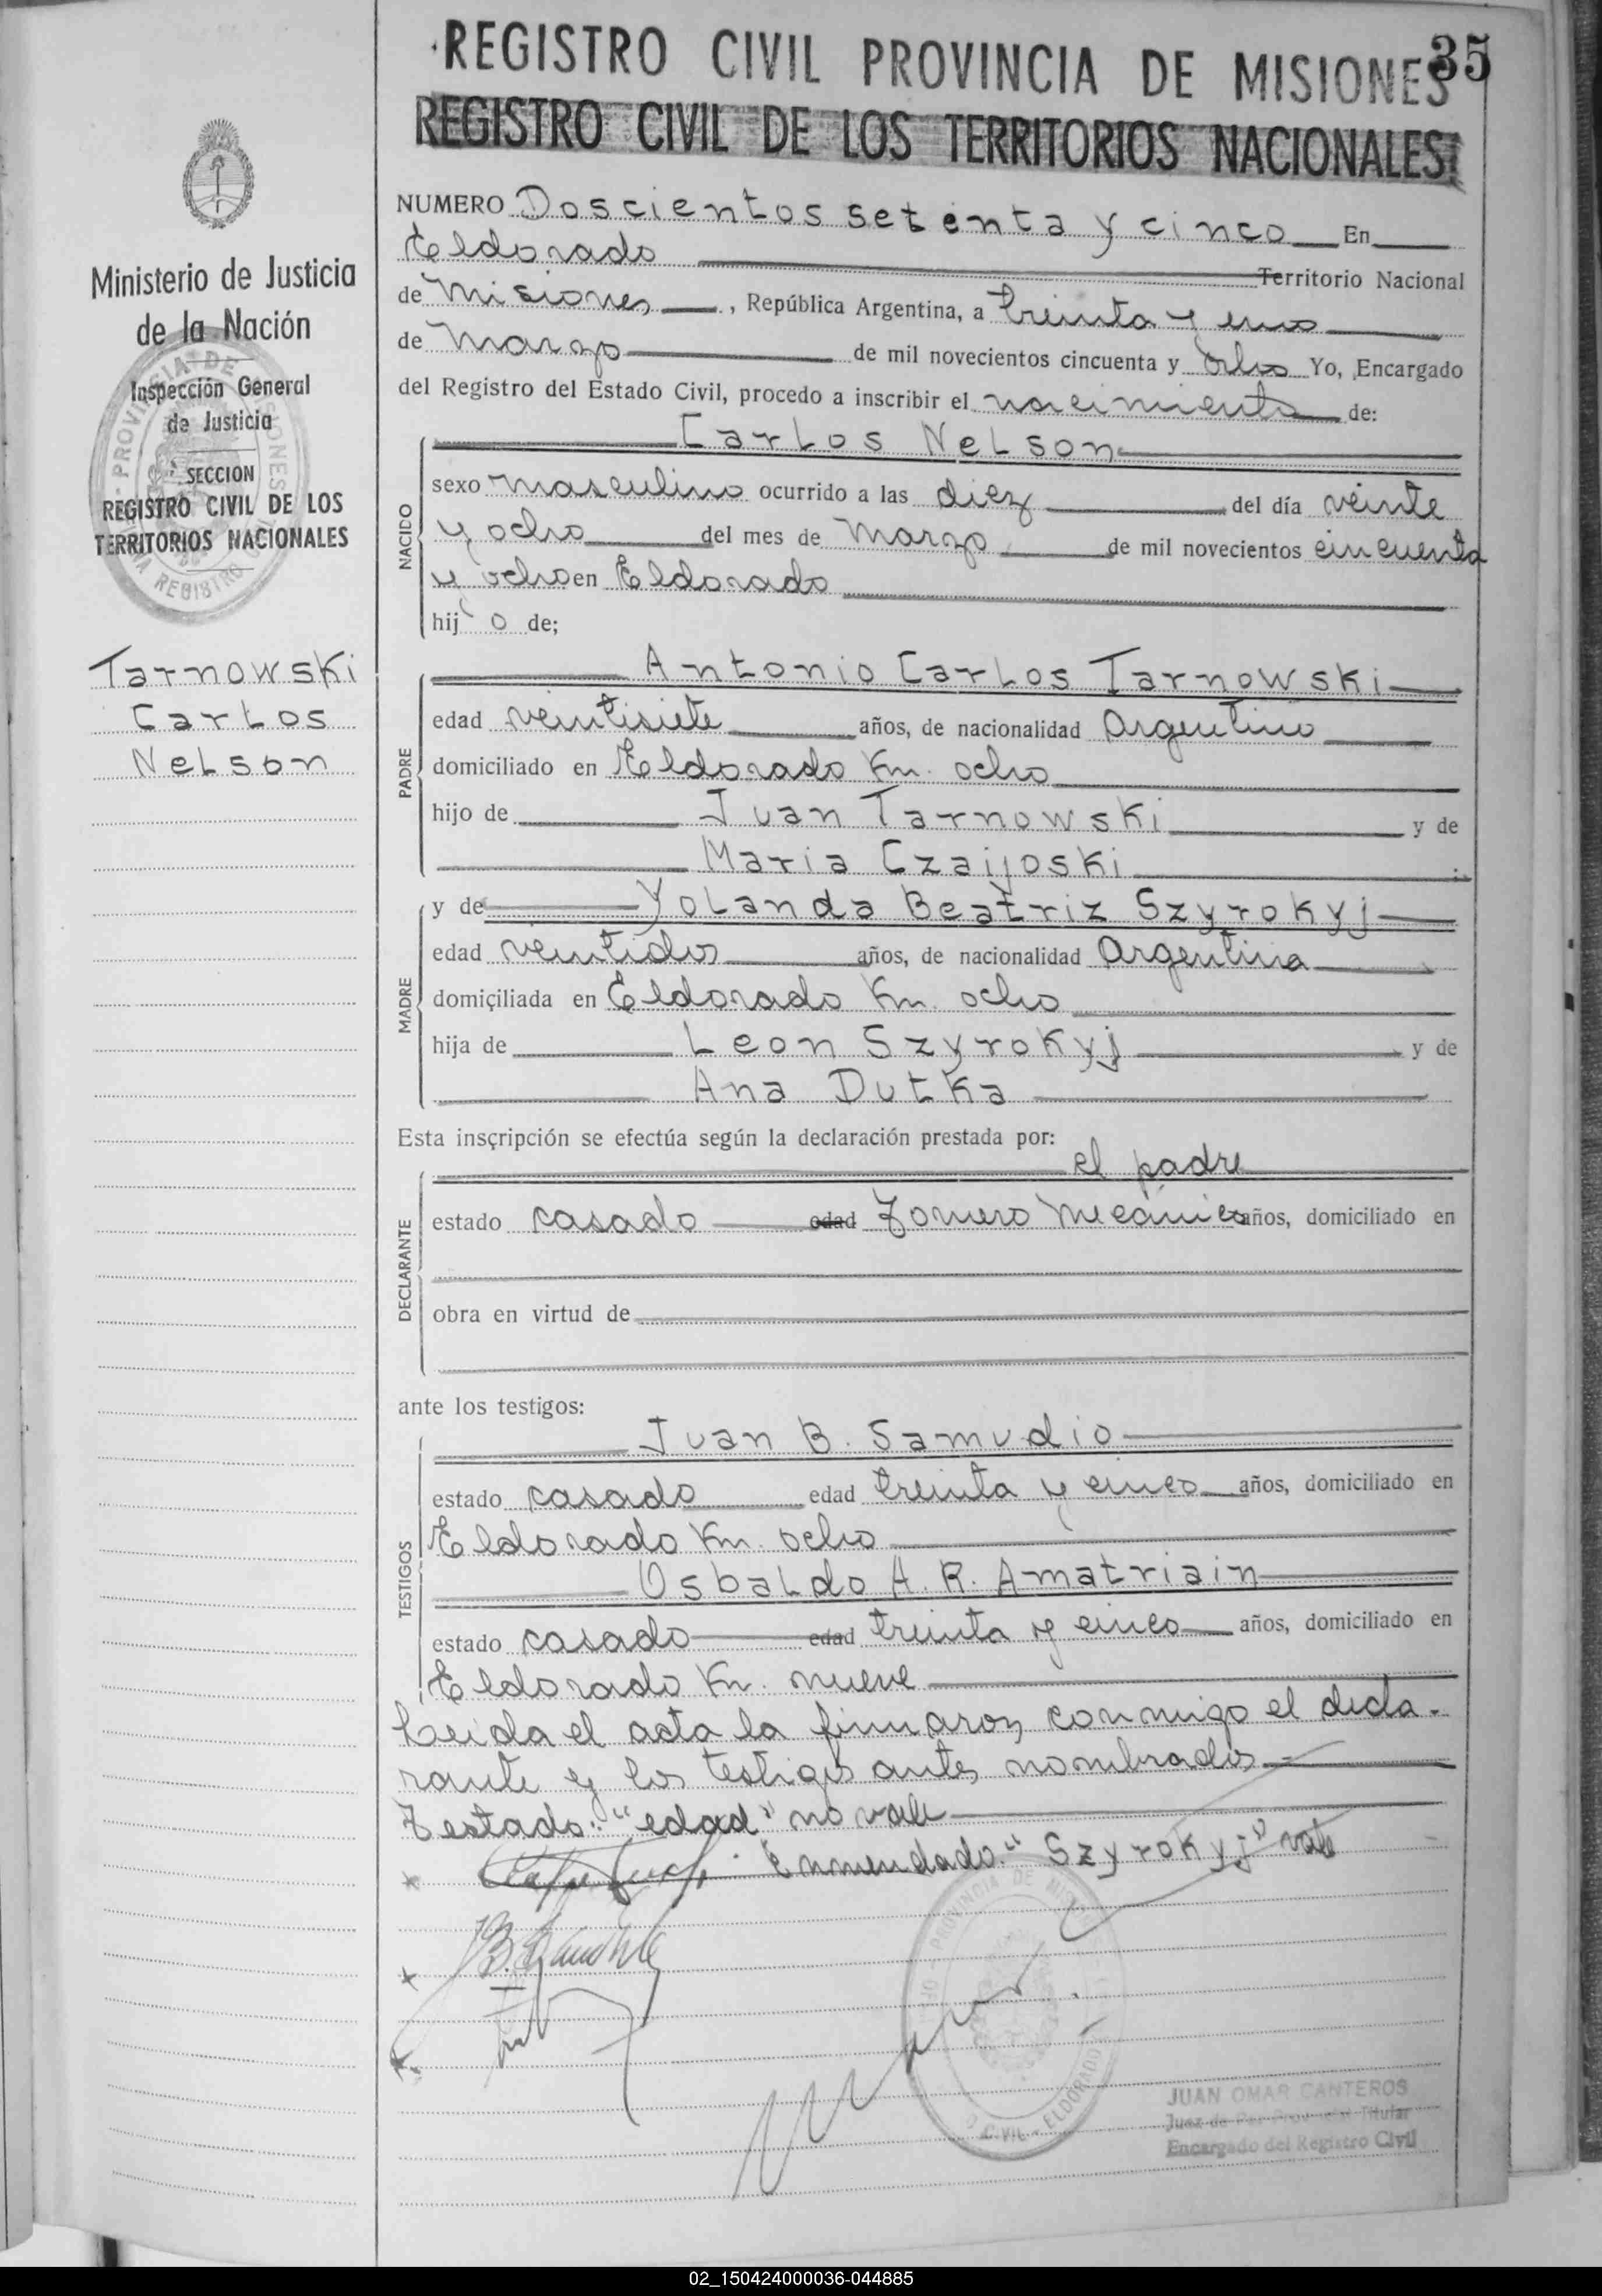 35
REGISTRO CIVIL PROVINCIA DE MISIONES
REGISTRO CIVIL DE LOS TERRITORIOS NACIONALES
Ministerio de Justicia
de la Nación
Inspección General
de Justicia
SECCION
REGISTRO CIVIL DE LOS
TERRITORIOS NACIONALES
Tarnowski
Carlos
Nelson
NUMERO Doscientos setenta y cinco En
Eldorado Territorio Nacional
de Misiones, República Argentina, a treinta y uno
de Marzo de mil novecientos cincuenta y ocho Yo, Encargado
del Registro del Estado Civil, procedo a inscribir el nacimiento de:
NACIDO
Carlos Nelson
sexo masculino ocurrido a las diez del día veinte
y ocho del mes de Marzo de mil novecientos cincuenta
y ocho en Eldorado
hijo de;
PADRE
Antonio Carlos Tarnowski
edad veintisiete años, de nacionalidad Argentino
domiciliado en Eldorado Km. ocho
hijo de Juan Tarnowski y de
Maria Czaijoski
MADRE
y de Yolanda Beatriz Szyrokyj
edad veintidos años, de nacionalidad Argentina
domiciliada en Eldorado Km. ocho
hija de Leon Szyrokyj y de
Ana Dutka
Esta inscripción se efectúa según la declaración prestada por:
DECLARANTE
el padre
estado casado edad Tornero Mecánico años, domiciliado en
obra en virtud de
ante los testigos:
TESTIGOS
Juan B. Samudio
estado casado edad treinta y cinco años, domiciliado en
Eldorado Km. ocho
Osbaldo A. R. Amatriain
estado casado edad treinta y cinco años, domiciliado en
Eldorado Km. nueve
Leida el acta la firmaron conmigo el decla-
rante y los testigos antes nombrados
Testado: "edad" no vale
Enmendado: "Szyrokyj" vale
PROVINCIA DE
CIVIL - ELDORADO
JUAN OMAR CANTEROS
Juez de Paz Titular
Encargado del Registro Civil
02_150424000036-044885